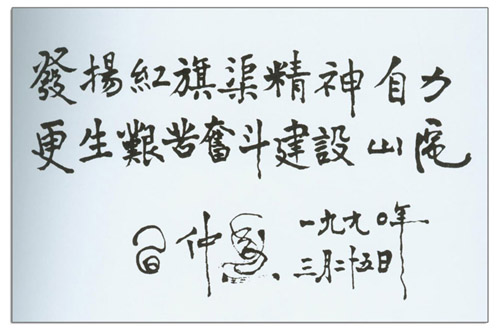 發揚紅旗渠精神自力
更生艱苦奮斗建設山區
仲
一九九〇年
三月二十五日